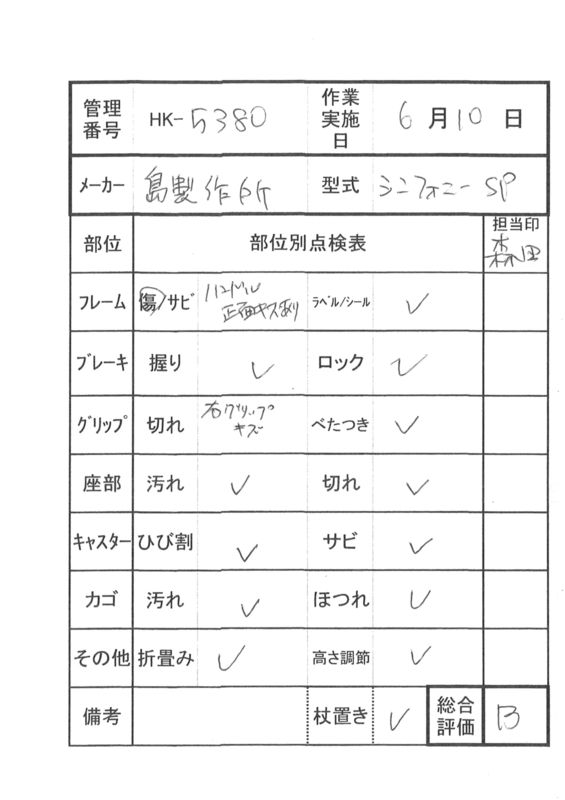 管理番号 HK-5380 作業実施日 6月10日
メーカー 島製作所 型式 シンフォニーSP
部位 部位別点検表 担当印 森田
フレーム 傷/サビ ハンドル正面キズあり ラベル/シール ✓
ブレーキ 握り ✓ ロック ✓
グリップ 切れ 右グリップキズ べたつき ✓
座部 汚れ ✓ 切れ ✓
キャスター ひび割 ✓ サビ ✓
カゴ 汚れ ✓ ほつれ ✓
その他 折畳み ✓ 高さ調節 ✓
備考 杖置き ✓ 総合評価 B